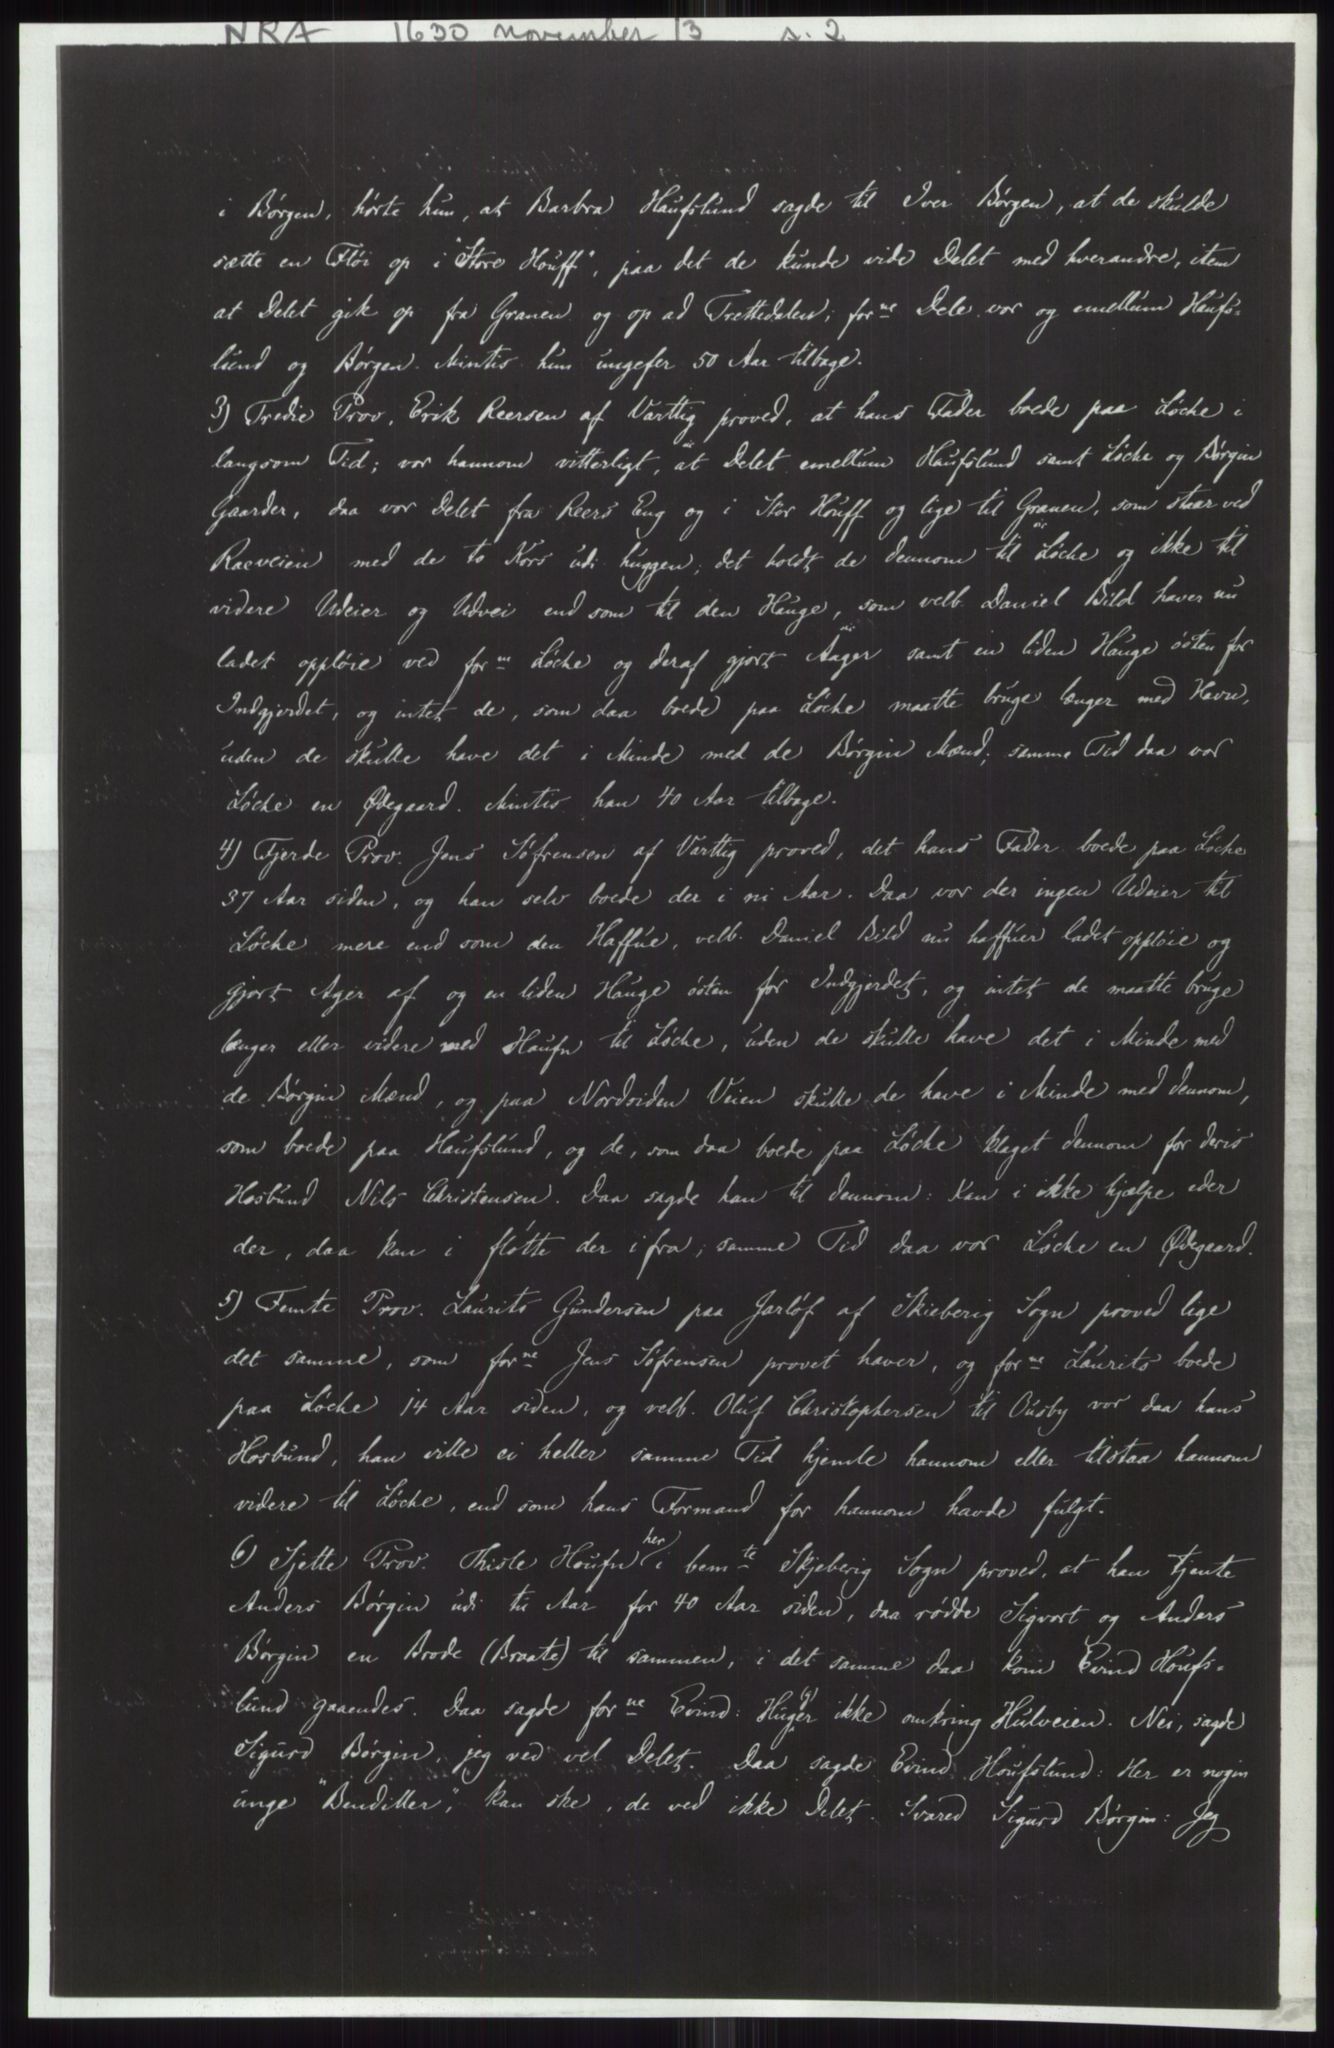 NRA 1630 november 13 s. 2
i Børgen, hørte hun, at Barbra Haufslund sagde til Iver Børgen, at de skulde
sætte en Fløi op i "Store Houff", paa det de kunde vide Delet med hverandre, item
at Delet gik op fra Granen og op ad Trettedalen; forne Dele vor og emellum Haufs-
lund og Børgen. Mintis hun ungefer 50 Aar tilbage.
3) Tredie Prov. Erik Reersen af Varttig proved, at hans Fader boede paa Løche i
langsom Tid; vor hannom vitterligt, at Delet emellum Haufslund samt Løche og Børgin
Gaarder, daa vor Delet fra Reers Eng og i Stor Houff og lige til Granen, som staar ved
Raeveien med de to Kors udi huggen; det holdt de dennom til Løche og ikke til
videre Udeier og Udvei end som til den Hauge, som velb. Daniel Bild haver nu
ladet oppløie ved forne Løche og deraf gjort Aager samt en liden Hauge østen for
Indgjerdet, og intet de, som daa boede paa Løche maatte bruge længer med Havn,
uden de skulle have det i Minde med de Børgin Mænd; samme Tid daa vor
Løche en Ødegaard. Mintis han 40 Aar tilbage.
4) Fjerde Prov. Jens Søfrensen af Varttig proved, det hans Fader boede paa Løche
37 Aar siden, og han selv boede der i ni Aar. Daa vor der ingen Udeier til
Løche mere end som den Haffue, velb. Daniel Bild nu haffuer ladet oppløie og
gjort Ager af og en liden Hauge østen for Indgjerdet, og intet de maatte bruge
længer eller videre med Haufn til Løche, uden de skulle have det i Minde med
de Børgin Mænd, og paa Nordsiden Veien skulle de have i Minde med dennom,
som boede paa Haufslund, og de, som daa boede paa Løche klaget dennom for deris
Hosbund Nils Christensen. Daa sagde han til dennom: Kan i ikke hjælpe eder
der, daa kan i fløtte der ifra; samme Tid daa vor Løche en Ødegaard.
5) Femte Prov. Laurits Gundersen paa Jarløf af Skieberig Sogn proved lige
det samme, som forne Jens Søfrensen provet haver, og forne Laurits boede
paa Løche 14 Aar siden, og velb. Oluf Christophersen til Ousby vor daa hans
Hosbund, han ville ei heller samme Tid hjemle hannom eller tilstaa hannom
videre til Løche, end som hans Formand for hannom havde fulgt.
6) Sjette Prov. Thisle Houfn her i bemte Skjeberig Sogn proved, at han tjente
Anders Børgin udi tu Aar for 40 Aar siden, daa rødde Sigvort og Anders
Børgin en Brode (Braate) til sammen, i det samme daa kom Evind Houfs-
lund gaaendes. Daa sagde forne Evind: Huger (g) ikke omkring Hulveien. Nei, sagde
Sigurd Børgin, jeg ved vel Delet. Daa sagde Evind Houfslund: Her er nogin
unge "Bendiller", kan ske, de ved ikke Delet. Svared Sigurd Børgin: Jeg